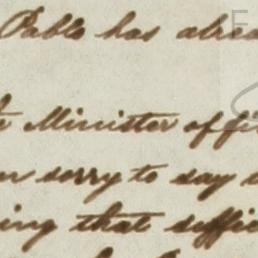 Pablo has alrea
Minister of fi
sorry to say
ing that suffic